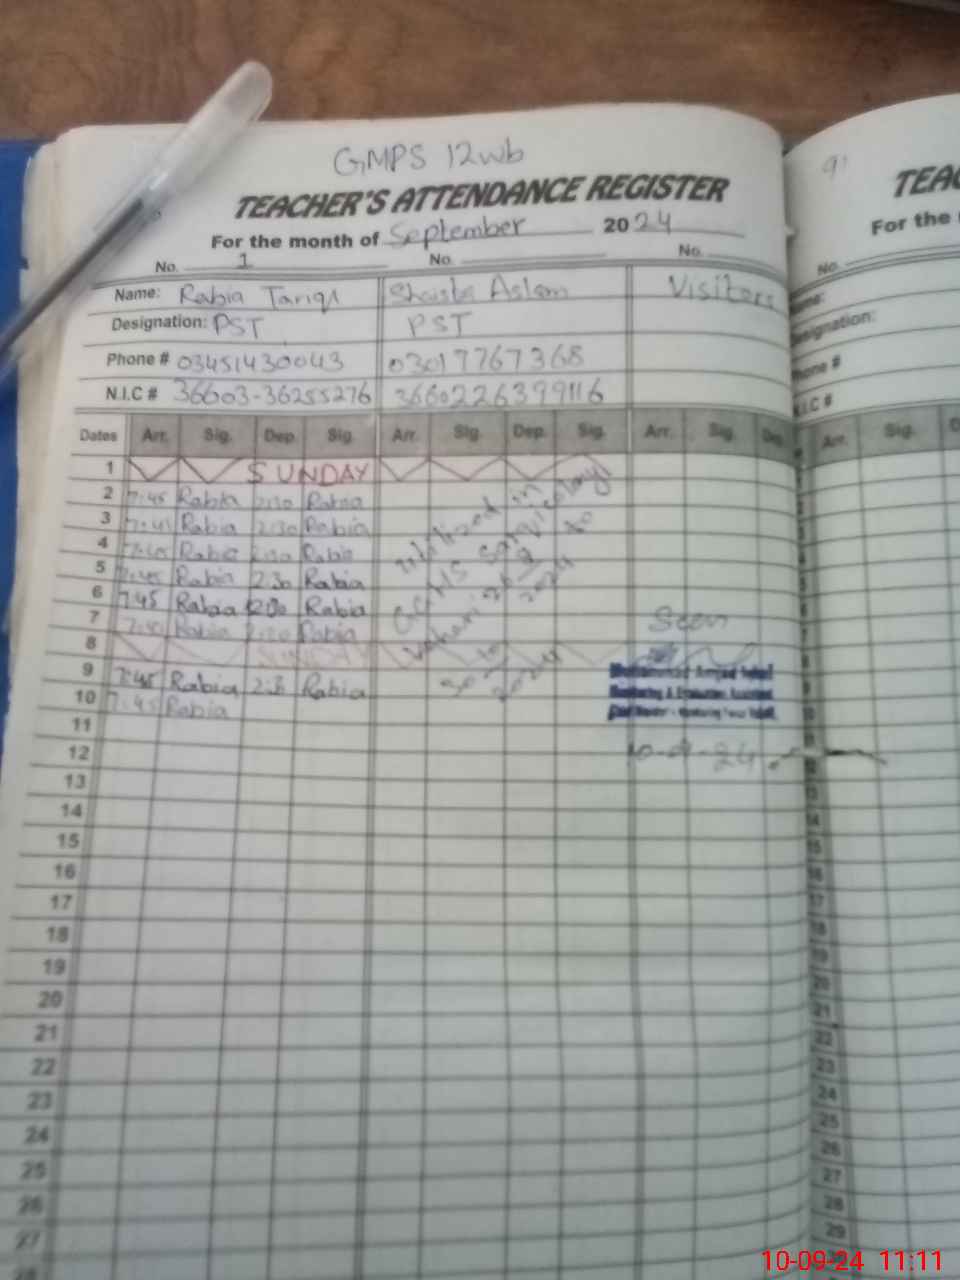 GMPS 12wb
TEACHER'S ATTENDANCE REGISTER
For the month of September 2024
No. 1 No. No.
Name: Rabia Tariq Shaista Aslam Visitors
Designation: PST PST
Phone # 03451430043 03017767368
N.I.C # 36603-36255276 3660226399116
Dates Arr. Sig. Dep. Sig. Arr. Sig. Dep. Sig. Arr. Sig. Dep.
1 SUNDAY
2 7:45 Rabia 2:30 Rabia
3 Rabia 2:30 Rabia
4 Rabia Rabia
5 7:45 Rabia 2:30 Rabia
6 7:45 Rabia Rabia
7 Rabia Rabia
8 SUNDAY
9 7:45 Rabia 2:3 Rabia
10 7:45 Rabia
11
12
13
14
15
16
17
18
19
20
21
22
23
24
25
26
27
28
utilized in
colony
vehari
to
2024
30
10
2024
Seen
Muhammad Amjad
Monitoring & Evaluation Assistant
10-9-24
91
TEAC
For the
No.
Name:
Designation:
Phone #
N.I.C #
Arr. Sig. D
22
23
24
25
26
27
28
29
10-09-24 11:11